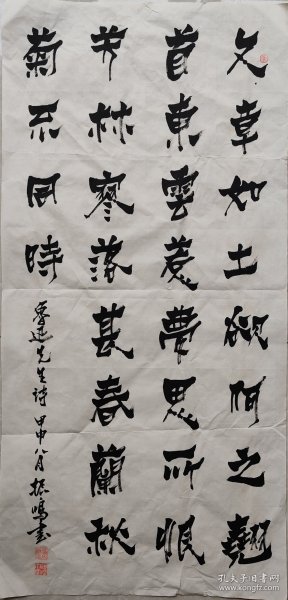 文章如土欲何之翹
首東雲惹夢思所恨
芳林寥落甚春蘭秋
菊不同時
魯迅先生詩 甲申八月 振鳴書
孔夫子旧书网